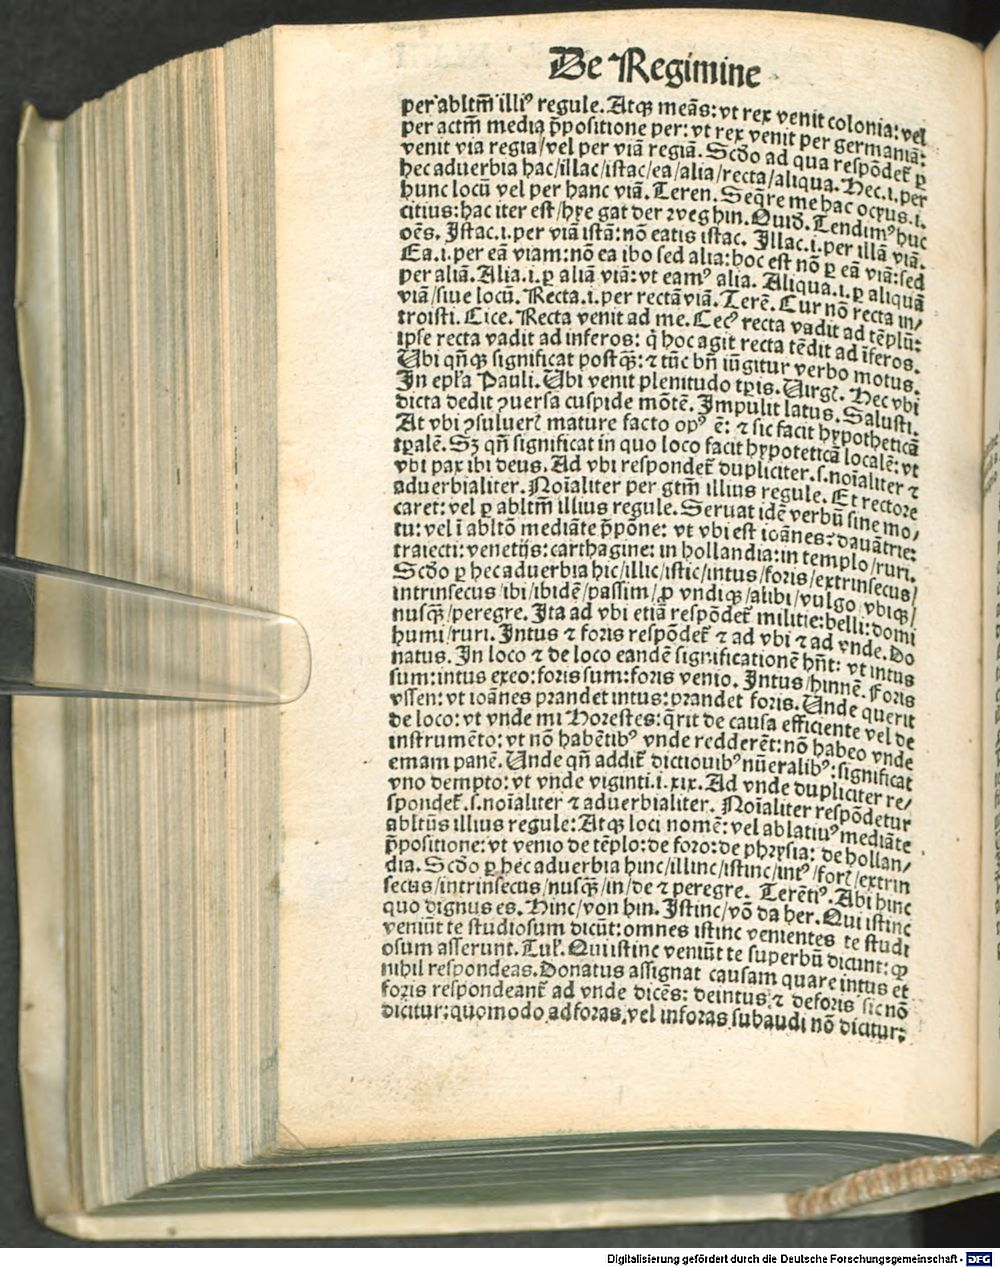 De Regimine
per abltm̄ illiꝰ regule. Atqꝫ meãs: vt rex venit colonia: vel
per actm̄ media p̄positione per: vt rex venit per germaniã:
venit via regia/vel per viã regiã. Scd̄o ad qua respõdet̃ ꝑ
hec aduerbia hac/illac/istac/ea/alia/recta/aliqua. Hec .i. per
hunc locũ vel per hanc viã. Teren. Seq̄re me hac ocyus .i.
citius: hac iter est/hye gat der weg hin. Quid̄. Tendimꝰ huc
oẽs. Istac .i. per viã istã: nõ eatis istac. Illac .i. per illã viã.
Ea .i. per eã viam: nõ ea ibo sed alia: hoc est nõ ꝑ eã viã: sed
per aliã. Alia .i. ꝑ aliã viã: vt eamꝰ alia. Aliqua .i. ꝑ aliquã
viã/siue locũ. Recta .i. per rectã viã. Terẽ. Cur nõ recta in/
troisti. Cice. Recta venit ad me. Lecꝰ recta vadit ad tẽplũ:
ipse recta vadit ad inferos: q̇ hoc agit recta tẽdit ad ĩferos.
Ubi qñqꝫ significat postqꝫ̃: ⁊ tũc bñ iũgitur verbo motus.
In epl'a Pauli. Ubi venit plenitudo tp̄is. Uirgĩ. Hec vbi
dicta dedit ꝯuersa cuspide mõtẽ. Impulit latus. Salusti.
At vbi ꝯsuluerĩ mature facto opꝰ ẽ: ⁊ sic facit hypotheticã
tp̄alẽ. Sꝫ qñ significat in quo loco facit hypoteticã localẽ: vt
vbi pax ibi deus. Ad vbi respondet̃ dupliciter .s. noĩaliter ⁊
aduerbialiter. Noĩaliter per gtm̄ illius regule. Et rectore
caret: vel ꝑ abltm̄ illius regule. Seruat idẽ verbũ sine mo/
tu: vel ĩ abltõ mediãte p̄põne: vt vbi est ioãnes: dauãtrie:
traiecti: venetijs: carthagine: in hollandia: in templo/ruri.
Scd̄o ꝑ hec aduerbia hic/illic/istic/intus/foris/extrinsecus/
intrinsecus/ibi/ibidẽ/passim/ꝓ vndiqꝫ/alibi/vulgo vbiqꝫ/
nusqꝫ̃/peregre. Ita ad vbi etiã respõdet̃ militie: belli: domi
humi/ruri. Intus ⁊ foris respõdet̃ ⁊ ad vbi ⁊ ad vnde. Do
natus. In loco ⁊ de loco eandẽ significationẽ hñt: vt intus
sum: intus exeo: foris sum: foris venio. Intus/hinnẽ. Foris
vssen: vt ioãnes prandet intus: prandet foris. Unde querit
de loco: vt vnde mi Horestes: q̄rit de causa efficiente vel de
instrumẽto: vt nõ habẽtibꝰ vnde redderẽt: nõ habeo vnde
emam panẽ. Unde qñ addit̃ dictiouibꝰ nũeralibꝰ: significat
vno dempto: vt vnde viginti .i. xix. Ad vnde dupliciter re/
spondet̃ .s. noĩaliter ⁊ aduerbialiter. Noĩaliter respõdetur
abltũs illius regule: Atqꝫ loci nomẽ: vel ablatiuꝰ mediãte
p̄positione: vt venio de tẽplo: de foro: de phrysia: de hollan/
dia. Scd̄o ꝑ hec aduerbia hinc/illinc/istinc/intꝰ/forĩ/extrin
secus/intrinsecus/nusqꝫ̃/in/de ⁊ peregre. Terẽtiꝰ. Abi hinc
quo dignus es. Hinc/von hin. Istinc/võ da her. Qui istinc
veniũt te studiosum dicũt: omnes istinc venientes te studi
osum asserunt. Tul̃. Qui istinc veniũt te superbũ dicunt: ꝙ
nihil respondeas. Donatus assignat causam quare intus et
foris respondeant̃ ad vnde dicẽs: deintus ⁊ deforis sic nõ
dicitur: quomodo adforas, vel inforas subaudi nõ dicitur:
Digitalisierung gefördert durch die Deutsche Forschungsgemeinschaft - DFG